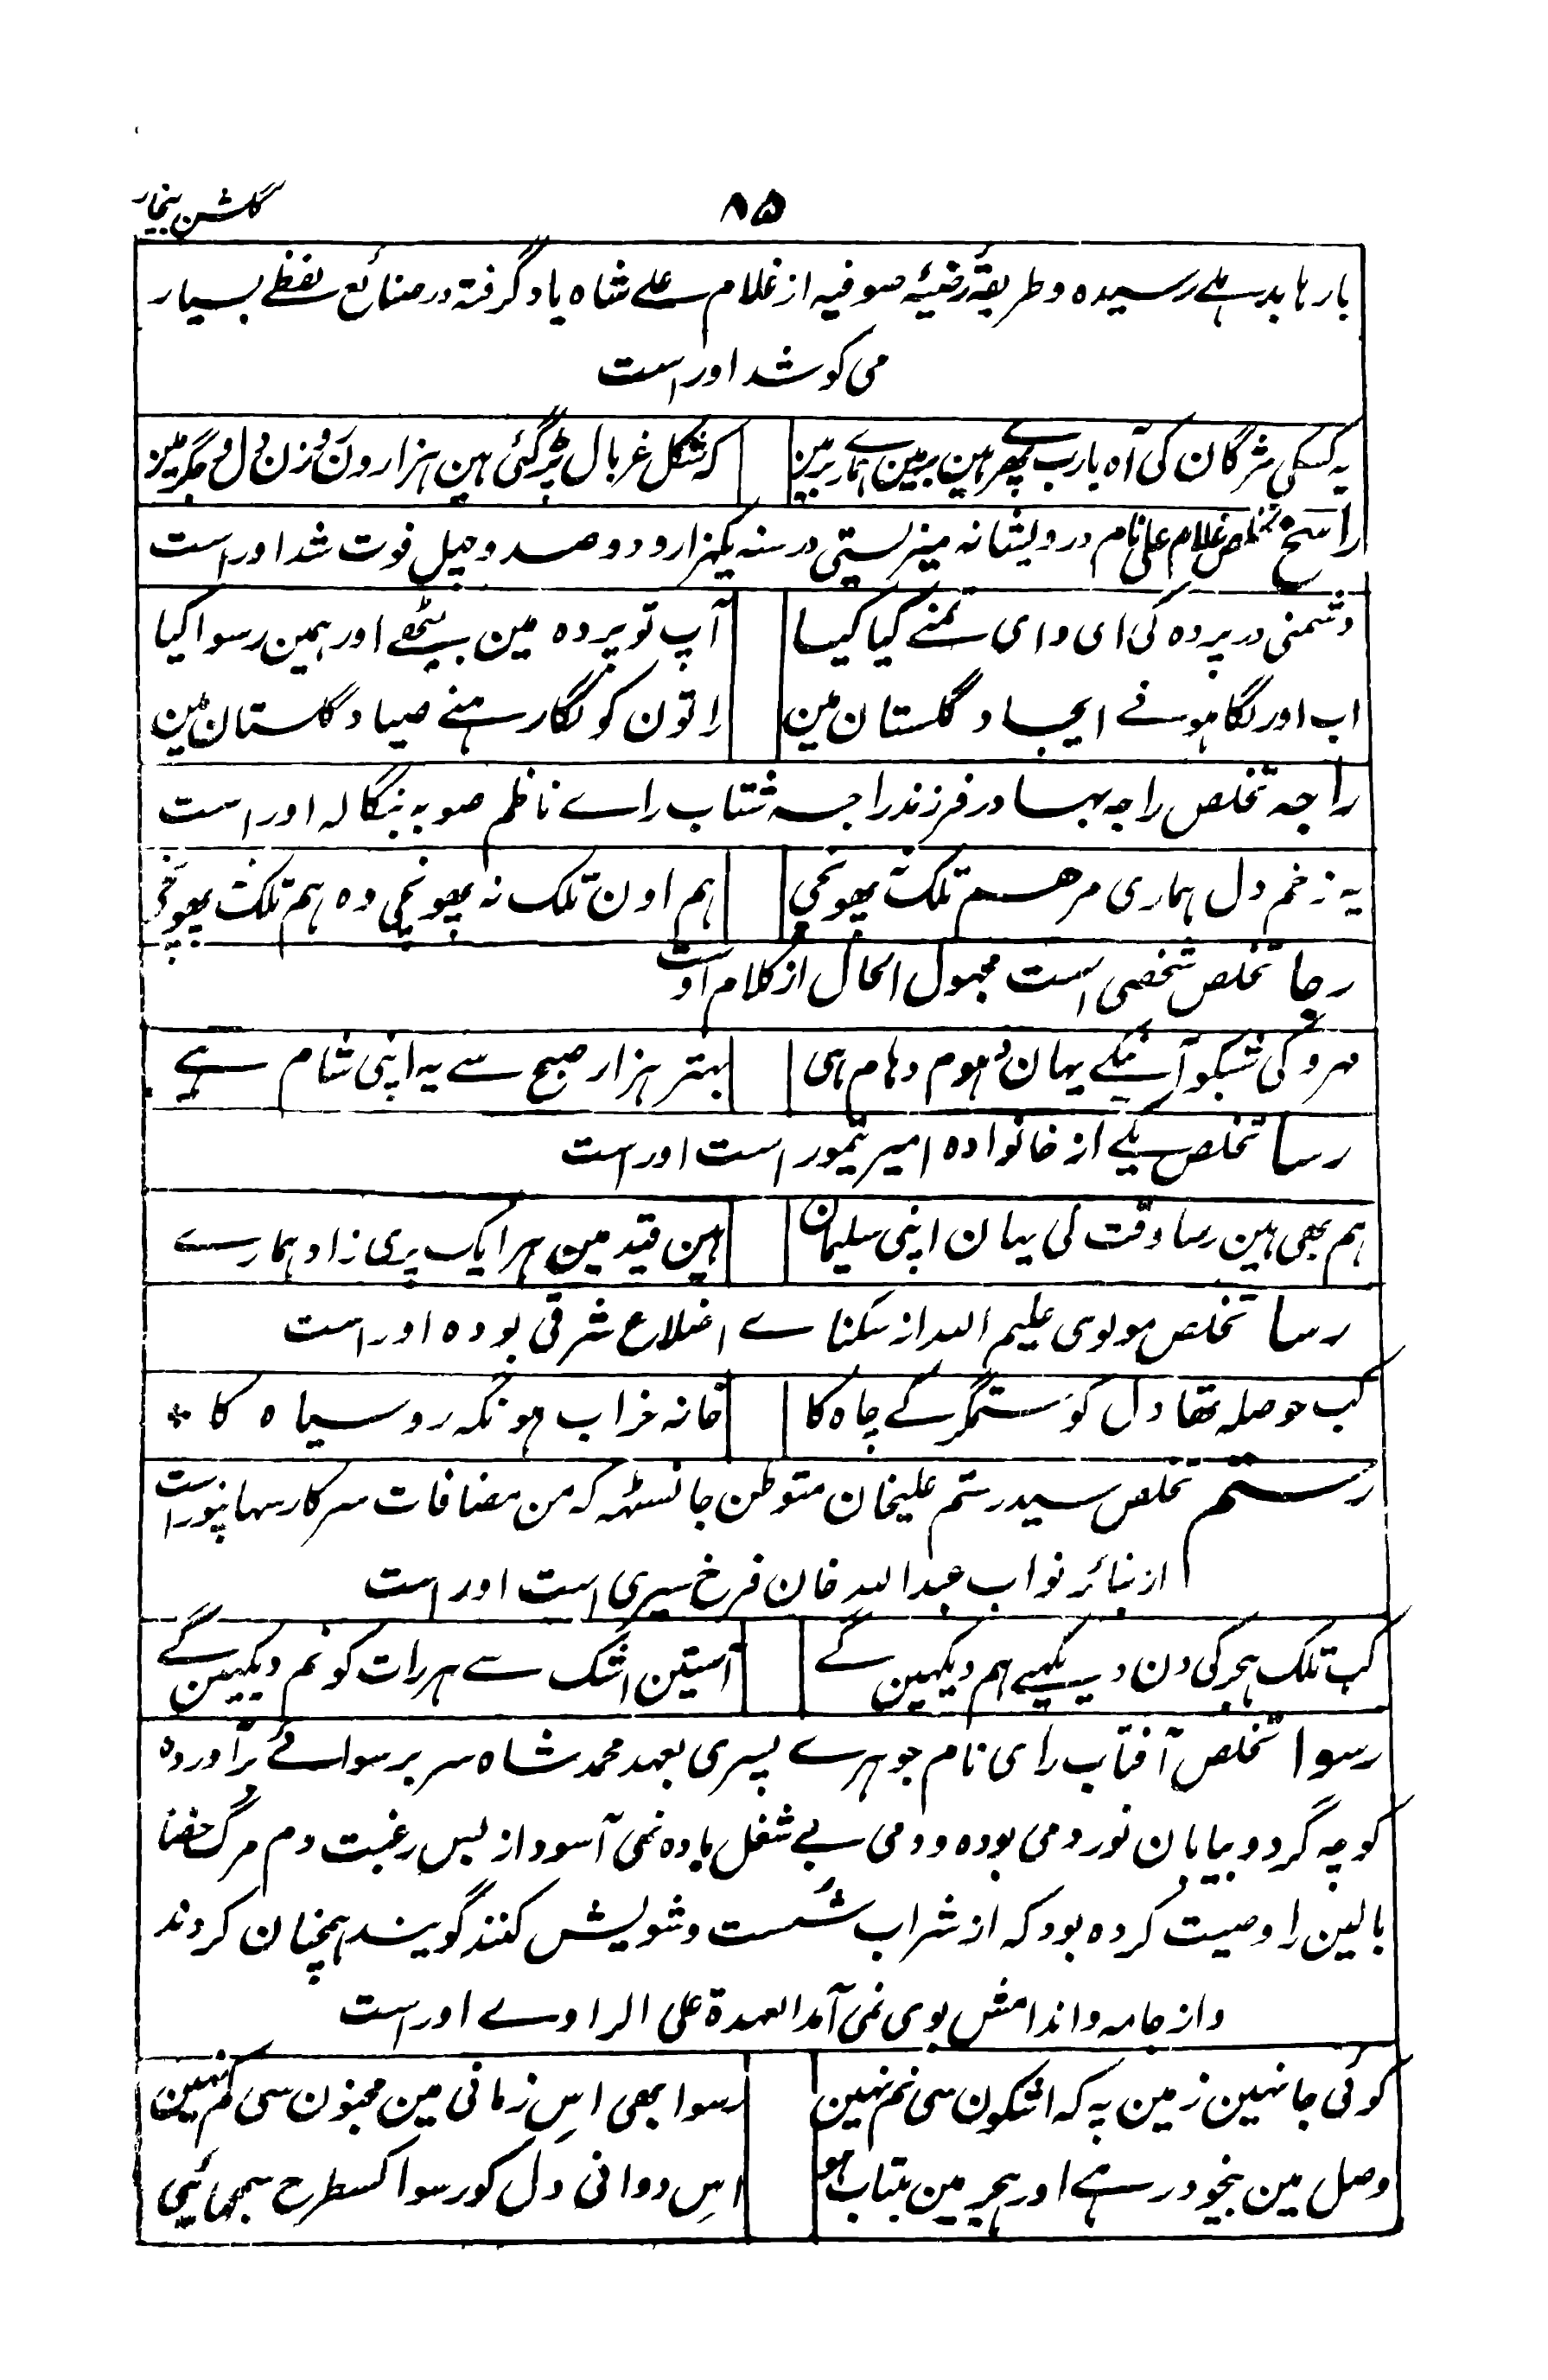 گلشن بیخار
۸۵
بارہا بدہلی رسیدہ و طریقۂ رضیۂ صوفیہ از غلام علے شاہ یاد گرفتہ در صنائع لفظے بسیار
می کوشد اوراست
یہ کسکی مژگان کی آہ یارب چھرہین ہمارے برمین
کہ شکل غربال پڑگئی ہین ہزارون وزن دل و جگرمین
راسخ تخلص غلام علی نام درویشانہ میزیستی در سنہ یکہزار و دوصد و چہل فوت شد اوراست
دشمنی در پردہ کی ای وای تمنے کیا کیا
آپ تو پردہ مین بیٹھے اور ہمین رسوا کیا
اب اور لگا ہونے ایجاد گلستان مین
راتون کو لگا رہنے صیاد گلستان مین
راجہ تخلص راجہ بہادر فرزند راجہ شتاب راے ناظم صوبہ بنگالہ اوراست
یہ زخم دل ہماری مرہم تلک نہ پھونچی
ہم اون تلک نہ پھونچی وہ ہم تلک نہ پھونچی
رجا تخلص شخصی است مجہول الحال از کلام اوست
مہرو کی شبکو آنیکے یہان دھوم دھام ہی
بہتر ہزار صبح سے یہ اپنی شام ہے
رسا تخلص یکے از خانوادہ امیر تیمور است اوراست
ہم بھی ہین رسا وقت کی یہان اپنی سلیمان
ہین قید مین ہر ایک پری زاد ہمارے
رسا تخلص مولوی علیم اللہ از سکناے اضلاع شرقی بودہ اوراست
کب حوصلہ تھا دل کو ستمگر کے چاہ کا
خانہ خراب ہو نگہ روسیاہ کا *
رستم تخلص سید رستم علیخان متوطن جانسٹہہ کہ من مضافات سرکار سہارنپور است
از نبائر نواب عبداللہ خان فرخ سیری است اوراست
کب تلک ہجر کی دن دیکھیے ہم دیکہین گے
آستین اشک سے ہر رات کو نم دیکہین گے
رسوا تخلص آفتاب رای نام جوہرے پسری بعہد محمد شاہ سر برسوائے برآوردہ
کوچہ گرد و بیابان نورد می بودہ و دمی بے شغل بادہ نمی آسود از بس رغبت دم مرگ حضار
بالین را وصیت کردہ بود کہ از شراب شست و شویش کنند گویند ہمچنان کردند
و از جامہ و اندامش بوی نمی آمد العہدۃ علی الراوے اوراست
کوئی جا نہین زمین پہ کہ اشکون سی نم نہین
رسوا بھی اس زمانی مین مجنون سی کم نہین
وصل مین بیخود رہے اور ہجر مین بیتاب ہو
اس دوانی دل کو رسوا کسطرح سمجھائیی